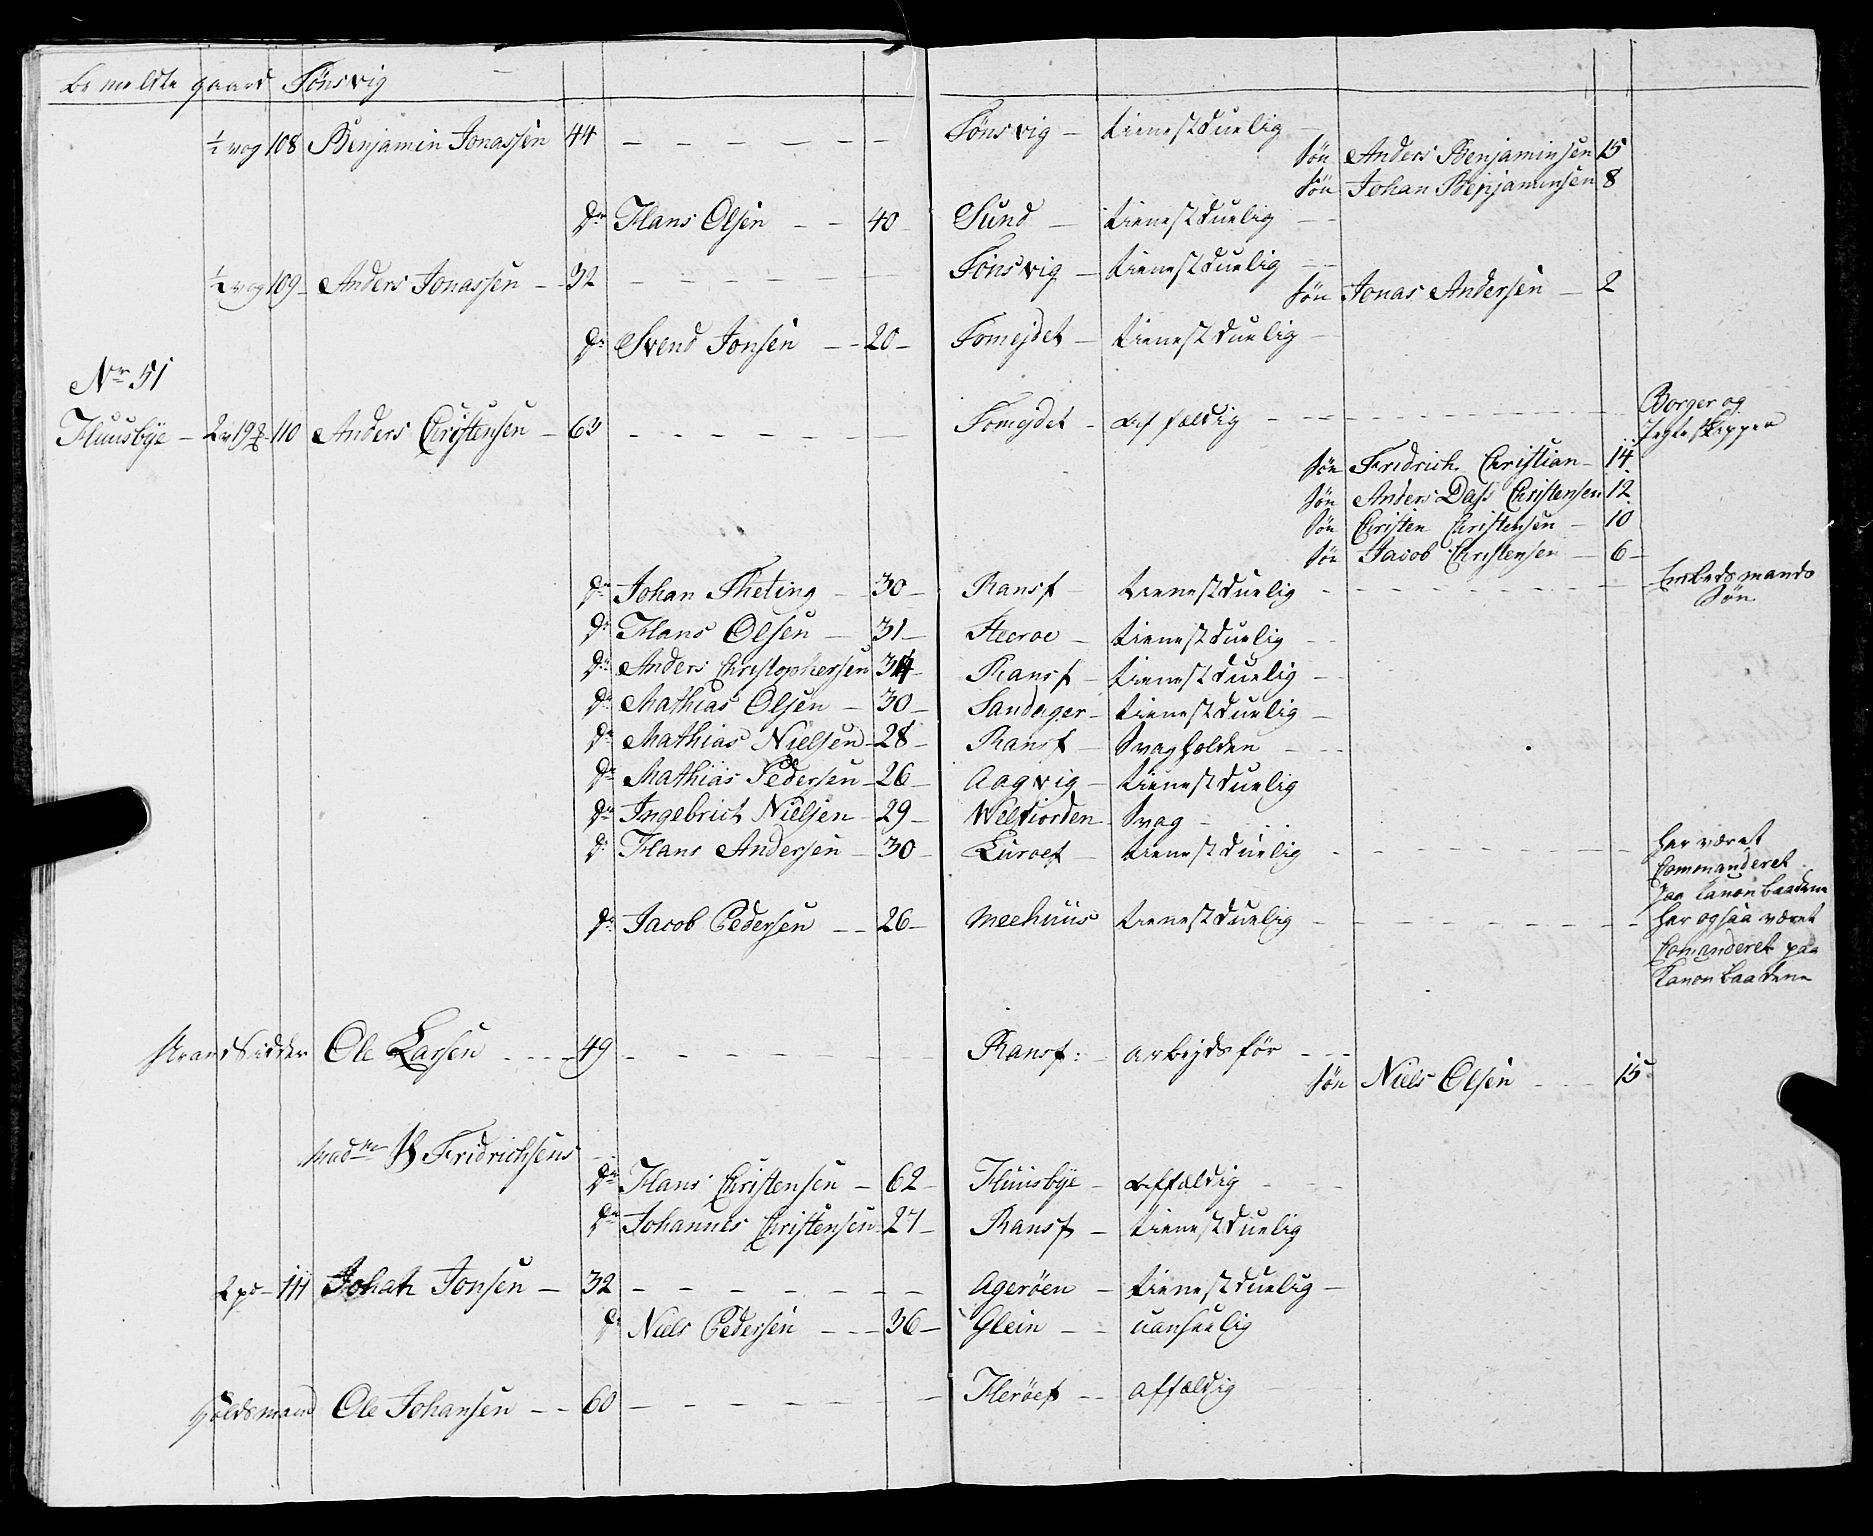 bemeldte gaard Tønsvig
½ vog 108 Benjamin Jonassen 44 — — — — — — Tønsvig — tienestduelig —
Søn Anders Benjaminsen 15
Søn Johan Benjaminsen 8
Dr Hans Olsen — — 40 — Sund — tienestduelig — —
½ vog 109 Anders Jonassen — 32 — — — — — Tønsvig — tienestduelig — —
Søn Jonas Andersen — 2
Dr Svend Jonsen — — 20 — Tomejdet — tienestduelig —
No 51
Huusbye — 110 Anders Christensen — 63 — — — — — — Tomejdet — affældig — — — Borger og
Jegteskipper
Søn Fridrich Christian — 14
Søn Anders Dass Christensen 12
Søn Christen Christensen — 10
Søn Jacob Christensen — 6 —
Dr Johan Theting — 30 — Ransf — tienestduelig — — — Embedsmands
Søn
Dr Hans Olsen — 31 — Steeroe — tienestduelig — —
Dr Anders Christophersen 34 — Ransf — tienestduelig — —
Dr Mathias Olsen — 30 — Sandager — tienestduelig —
Dr Mathias Nielsen — 28 — Ransf — Svagholden — — —
Dr Mathias Pedersen — 26 — Aagvig — tienestduelig
Dr Ingebrict Nielsen — 29 — Welfiorden — Svag —
Dr Hans Andersen — 30 — Luroef — tienestduelig — — — har været
Commanderet
paa Canonbaadene
Dr Jacob Pedersen — — 26 — Meehuus tienestduelig — — — har ogsaa været
Comanderet paa
Canonbaadene
Strandsidder Ole Larsen — — — 49 — — — — — Ransf: — arbejdsfør — — —
Søn Niels Olsen — — 15
Madme Fridrichsens —
Dr Hans Christensen — 62 — Huusbye — affældig — —
Dr Johannes Christensen — 27 — Ransf — tienestduelig
2 pd — 111 Johan Jonsen — 32 — — — — — — Agerøen — tienestduelig —
Dr Niels Pedersen — — — 36 — Glein — — uanseelig
Holdsmand Ole Johansen — — 60 — — — — — — Herøef — — affældig —